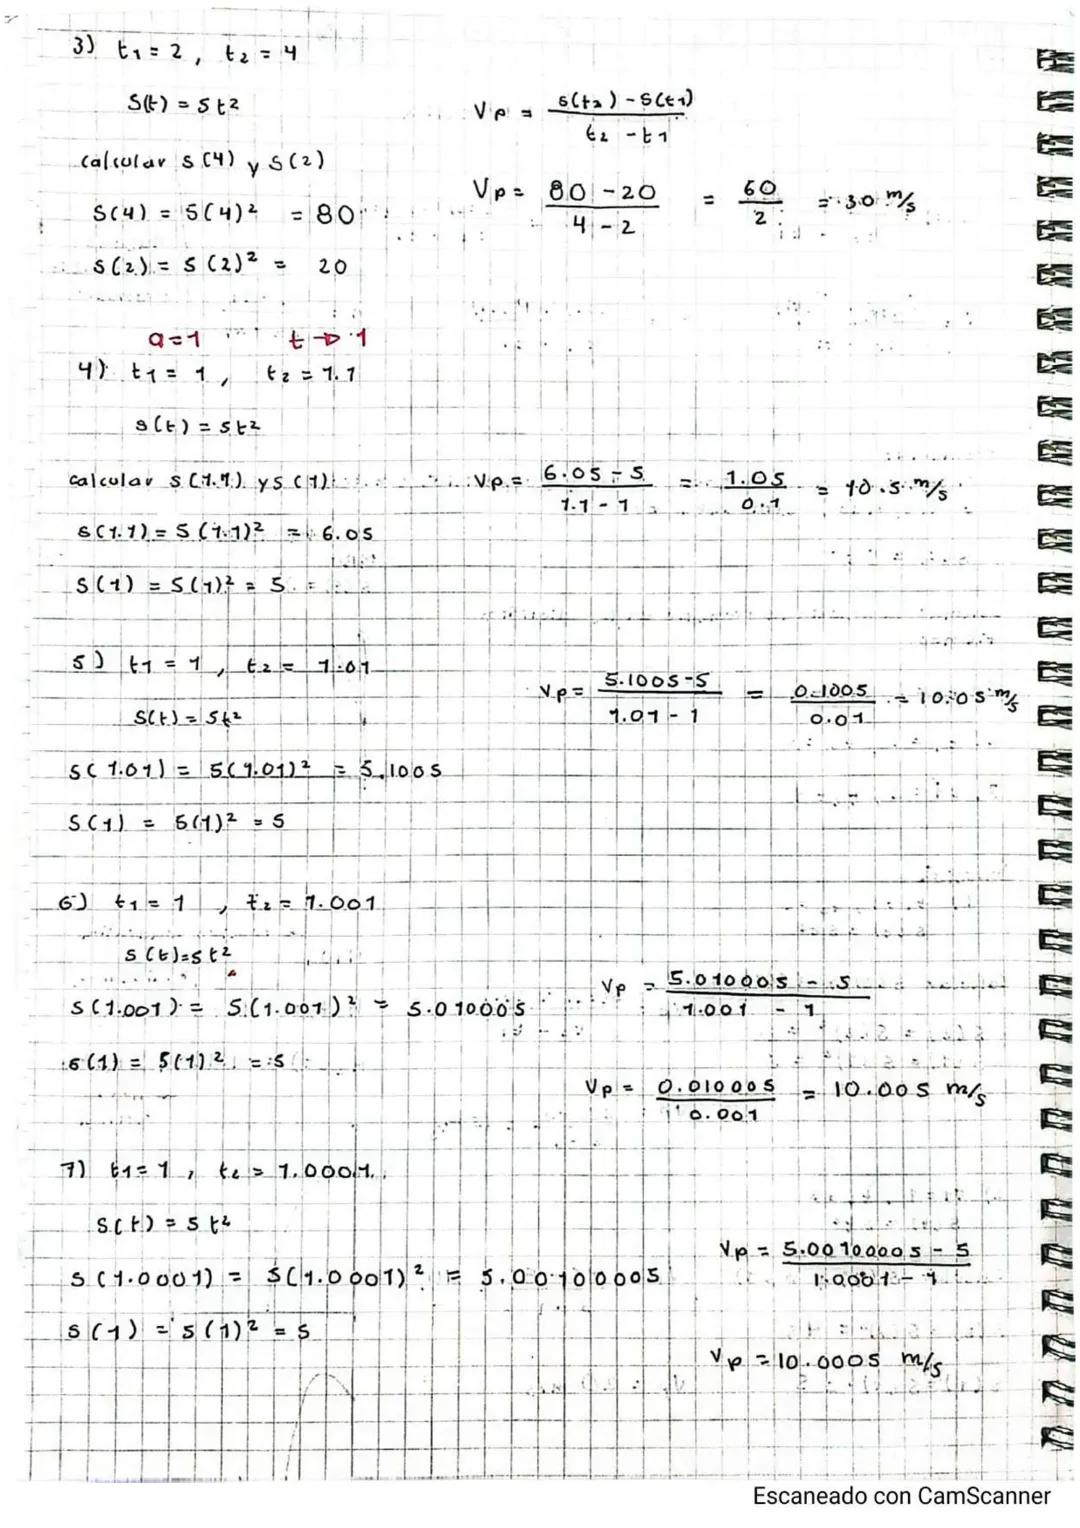 3) t1 = 2, t2 = 4
S(t) = 5t2
Vp = s(t2) - s(t1)
t2 - t1
calcular s(4) y s(2)
S(4) = 5(4)2 = 80
Vp = 80 - 20 = 60 = 30 m/s
4 - 2 2
S(2) = 5(2)2 = 20
a=1 t → 1
4) t1 = 1, t2 = 1.1
s(t) = 5t2
calcular s(1.1) y s(1)
Vp = 6.05 - 5 = 1.05 = 10.5 m/s
1.1 - 1 0.1
s(1.1) = 5(1.1)2 = 6.05
S(1) = 5(1)2 = 5
5) t1 = 1, t2 = 1.01
Vp = 5.1005-5 = 0.1005 = 10.05 m/s
1.01 - 1 0.01
S(t) = 5t2
S(1.01) = 5(1.01)2 = 5.1005
S(1) = 5(1)2 = 5
6) t1 = 1, t2 = 1.001
s(t)=5t2
Vp = 5.010005 - 5
1.001 - 1
S(1.001) = 5(1.001)2 = 5.010005
s(1) = 5(1)2 = 5
Vp = 0.010005 = 10.005 m/s
0.001
7) t1 = 1, t2 = 1.0001
S(t) = 5t2
Vp = 5.00100005 - 5
1.0001 - 1
s(1.0001) = 5(1.0001)2 = 5.00100005
s(1) = 5(1)2 = 5
Vp = 10.0005 m/s
Escaneado con CamScanner